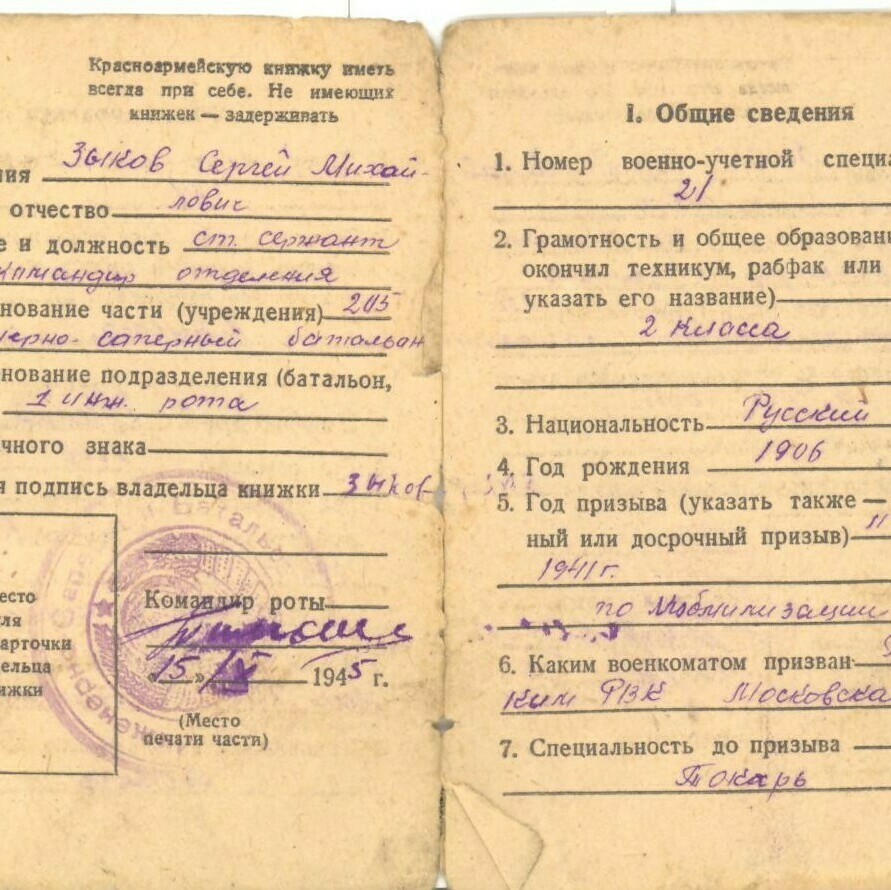 Красноармейскую книжку иметь
всегда при себе. Не имеющих
книжек — задерживать
ия Зыков Сергей Михай-
отчество лович
е и должность ст. сержант
командир отделения
нование части (учреждения) 205
нерно-саперный батальон
нование подразделения (батальон,
1 инж. рота
чного знака
я подпись владельца книжки Зыков
есто
ля
арточки
дельца
нижки
Командир роты
«15» IX 1945 г.
(Место
печати части)
I. Общие сведения
1. Номер военно-учетной специа
21
2. Грамотность и общее образовани
окончил техникум, рабфак или
указать его название)
2 класса
3. Национальность Русский
4. Год рождения 1906
5. Год призыва (указать также —
ный или досрочный призыв)
1941 г.
по мобилизации
6. Каким военкоматом призван
ким РВК Московска
7. Специальность до призыва
Токарь